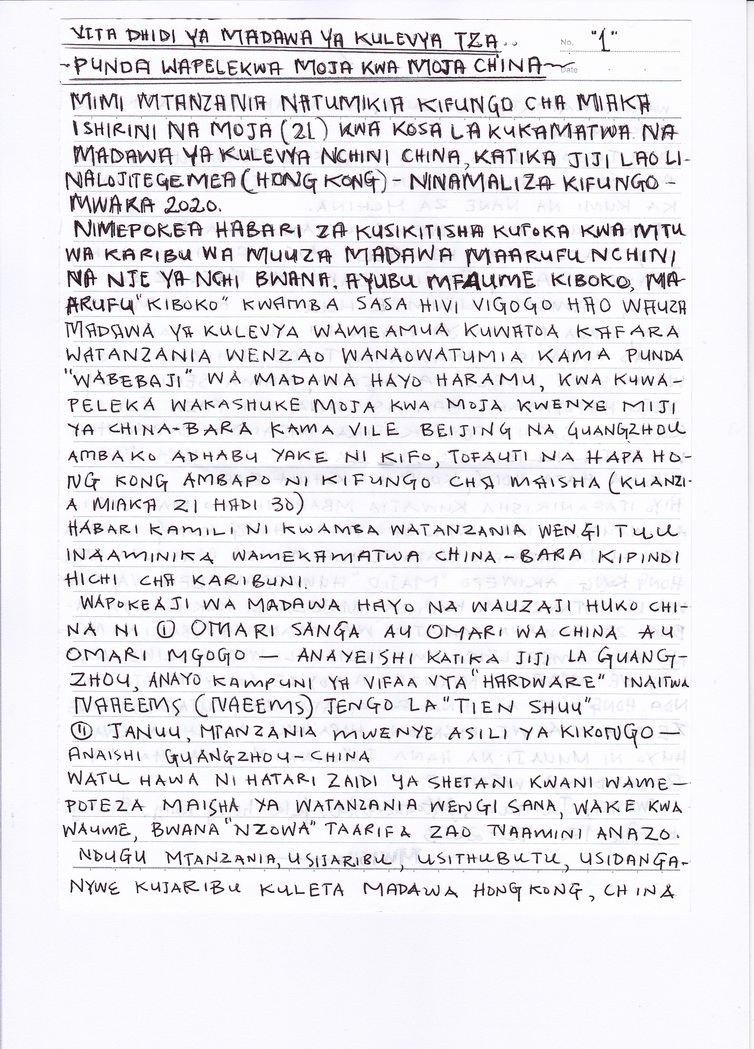 VITA DHIDI YA MADAWA YA KULEVYA TZA..
No. "1"
~PUNDA WAPELEKWA MOJA KWA MOJA CHINA~
Date
MIMI MTANZANIA NATUMIKIA KIFUNGO CHA MIAKA
ISHIRINI NA MOJA (21) KWA KOSA LA KUKAMATWA NA
MADAWA YA KULEVYA NCHINI CHINA, KATIKA JIJI LAO LI-
NALOJITEGEMEA (HONG KONG) - NINAMALIZA KIFUNGO -
MWAKA 2020.
NIMEPOKEA HABARI ZA KUSIKITISHA KUTOKA KWA MTU
WA KARIBU WA MUUZA MADAWA MAARUFU NCHINI
NA NJE YA NCHI BWANA. AYUBU MFAUME KIBOKO, MA-
ARUFU "KIBOKO" KWAMBA SASA HIVI VIGOGO HAO WAUZA
MADAWA YA KULEVYA WAMEAMUA KUWATOA KAFARA
WATANZANIA WENZAO WANAOWATUMIA KAMA PUNDA
"WABEBAJI" WA MADAWA HAYO HARAMU, KWA KUWA-
PELEKA WAKASHUKE MOJA KWA MOJA KWENYE MIJI
YA CHINA-BARA KAMA VILE BEIJING NA GUANGZHOU
AMBAKO ADHABU YAKE NI KIFO, TOFAUTI NA HAPA HO-
NG KONG AMBAPO NI KIFUNGO CHA MAISHA (KUANZI-
A MIAKA 21 HADI 30)
HABARI KAMILI NI KWAMBA WATANZANIA WENGI TUU
INAAMINIKA WAMEKAMATWA CHINA-BARA KIPINDI
HICHI CHA KARIBUNI.
WAPOKEAJI WA MADAWA HAYO NA WAUZAJI HUKO CHI-
NA NI ① OMARI SANGA AU OMARI WA CHINA AU
OMARI MGOGO — ANAYEISHI KATIKA JIJI LA GUANG-
ZHOU, ANAYO KAMPUNI YA VIFAA VYA "HARDWARE" INAITWA
NAREEMS (NAEEMS) JENGO LA "TIEN SHUU"
⑪ JANUU, MTANZANIA MWENYE ASILI YA KIKONGO —
ANAISHI GUANGZHOU-CHINA
WATU HAWA NI HATARI ZAIDI YA SHETANI KWANI WAME-
POTEZA MAISHA YA WATANZANIA WENGI SANA, WAKE KWA
WAUME, BWANA "NZOWA" TAARIFA ZAO NAAMINI ANAZO.
NDUGU MTANZANIA, USIJARIBU, USITHUBUTU, USIDANGA-
NYWE KUJARIBU KULETA MADAWA HONG KONG, CHINA